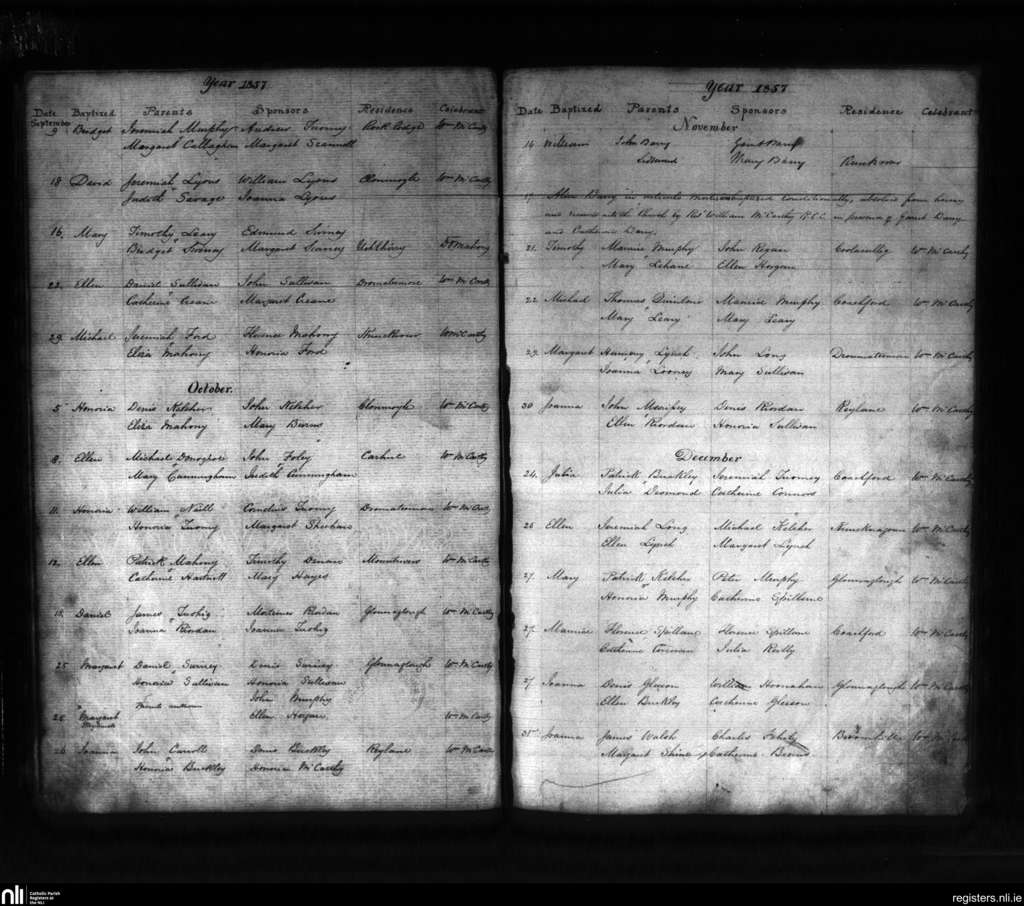 Year 1857
Date Baptized Parents Sponsors Residence Celebrant
September
9 Bridget Jeremiah Murphy Andrew Twomy Rock Lodge Wm McCarthy
Margaret Callaghan Margaret Scannell
18 David Jeremiah Lyons William Lyons Clonmoyle Wm McCarthy
Judith Savage Joanna Lyons
16. Mary Timothy Leary Edmund
Bridget Margaret Mahony
22. Ellen Daniel Sullivan John Sullivan Wm McCarthy
Catherine Creane Margaret Creane
29. Michael Jeremiah Ford Florence Mahony Wm McCarthy
Eliza Mahony Honoria Ford
October.
5 Honoria Denis Kelcher John Kelcher Clonmoyle Wm McCarthy
Eliza Mahony Mary Burns
8. Ellen Michael Donoghoe John Foley Carhue Wm McCarthy
Mary Cunningham Judith Cunningham
Honoria William Cornelius Twomy Wm McCarthy
Honoria Twomy Margaret
12. Ellen Patrick Mahony Timothy Wm McCarthy
Catherine Hartnett Mary Hayes
Daniel James Twohig Mortimer Riordan Glounaglough Wm McCarthy
Joanna Riordan Joanna Twohig
25 Margaret Daniel Denis Glounaglough Wm McCarthy
Honoria Sullivan Honoria Sullivan
Parents unknown John Murphy
Margaret Ellen Wm McCarthy
26 Joanna John Carroll Denis Buckley Reylane Wm McCarthy
Honoria Buckley Honoria McCarthy
Year 1857
Date Baptized Parents Sponsors Residence Celebrant
November
16 William John Barry Barry
Mary Barry
17. Barry in conditionally, absolved from heresy
and received into the Church by Revd William McCarthy R.C.C. in presence of Barry
and Catherine Barry.
21. Timothy Maurice Murphy John Wm McCarthy
Mary Lehane Ellen Horgan
22 Michael Thomas Quinlan Maurice Murphy Coachford Wm McCarthy
Mary Leary Mary Leary
29. Margaret Lynch John Long Wm McCarthy
Joanna Looney Mary Sullivan
30 Joanna John Denis Riordan Reylane Wm McCarthy
Ellen Riordan Honoria Sullivan
December
24. Julia Patrick Buckley Jeremiah Twomey Coachford Wm McCarthy
Julia Desmond Catherine Connors
26 Ellen Jeremiah Long Michael Kelcher Wm McCarthy
Ellen Lynch Margaret Lynch
27. Mary Patrick Kelcher Peter Murphy Glounaglough Wm McCarthy
Honoria Murphy Catherine Spillane
27. Maurice Florence Spillane Florence Spillane Coachford Wm McCarthy
Catherine Julia Reilly
27 Joanna Denis Gleeson William Noonahan Glounaglough Wm McCarthy
Ellen Buckley Catherine Gleeson
31st Joanna James Walsh Charles Wm McCarthy
Margaret Shine Catherine
nli
Catholic Parish
Registers at
the NLI
registers.nli.ie